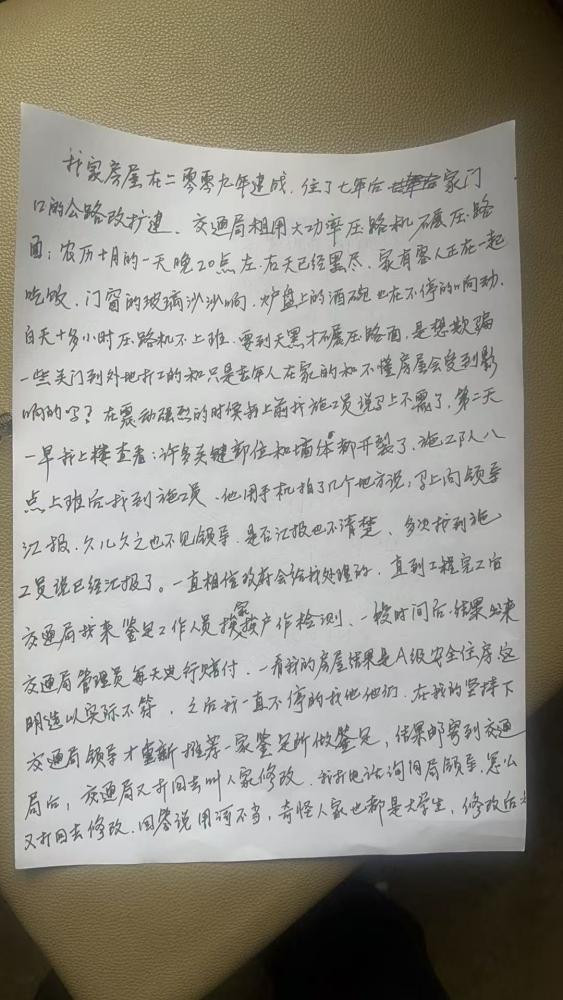 我家房屋在二零零九年建成，住了七年后 家门
口的公路改扩建，交通局租用大功率压路机碾压路
面；农历十月的一天晚20点左右天已经黑尽，家有客人正在一起
吃饭，门窗的玻璃沙沙响，炉盘上的酒碗也在不停的响动，
白天十多小时压路机不上班，要到天黑才碾压路面，是想欺骗
一些关门到外地打工的和只是老年人在家的和不懂房屋会受到影
响的吗？在震动强烈的时候我上前找施工员说马上不震了，第二天
一早我上楼查看；许多关键部位和墙体都开裂了，施工队八
点上班后找到施工员，他用手机拍了几个地方说，马上向领导
汇报，久久之也不见领导，是否汇报也不清楚，多次找到施
工员说已经汇报了。一直相信政府会给我处理的，直到工程完工后
交通局找来鉴定工作人员挨家挨户作检测，一段时间后结果出来
交通局管理员每天进行赔付，一看我的房屋结果是A级安全住房，这
明造以实际不符，之后我一直不停的找他他们，在我的坚持下
交通局领导才重新推荐一家鉴定所做鉴定，结果邮寄到交通
局后，交通局又打回去叫人家修改，我打电话询问局领导，怎么
又打回去修改，回答说用词不当，奇怪人家也都是大学生，修改后